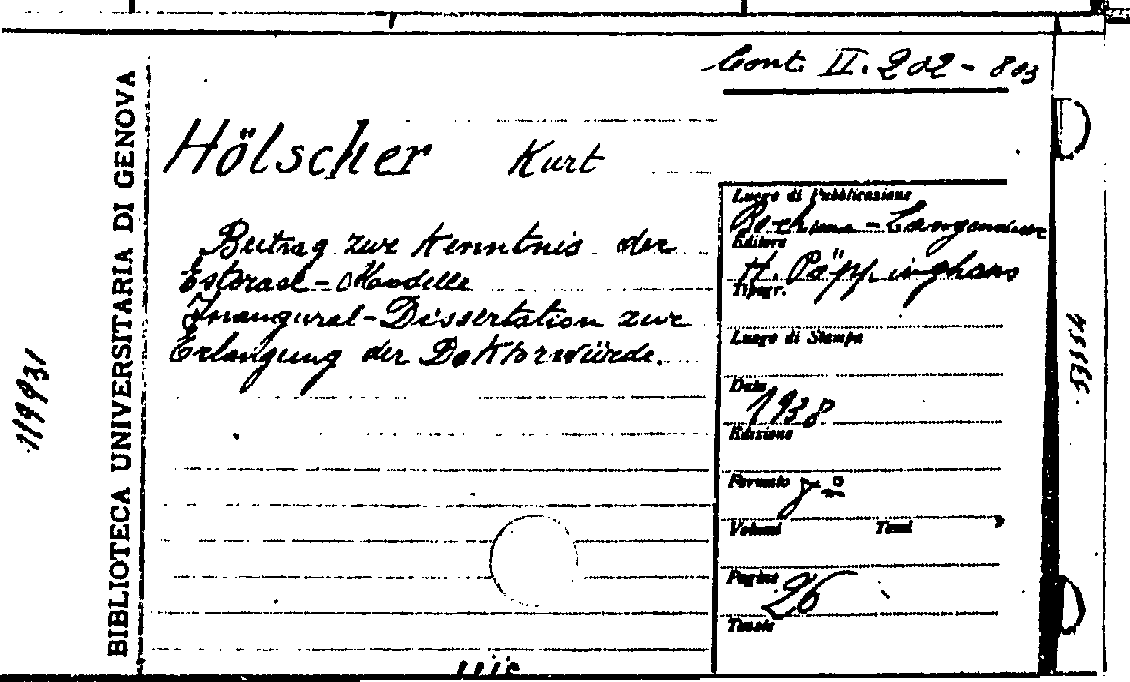 Cont. II. 202 - 803
BIBLIOTECA UNIVERSITARIA DI GENOVA
Hölscher Kurt
Beitrag zur Kenntnis der
Estorael - Mandelle
Inaugural-Dissertation zur
Erlangung der Doktorwürde.
Luogo di Pubblicazione
Editore
H. Pöppinghaus
Tipogr.
Luogo di Stampa
Data
1938
Edizione
Formato 8º
Volumi Tomi
Pagine
26
Tavole
119931